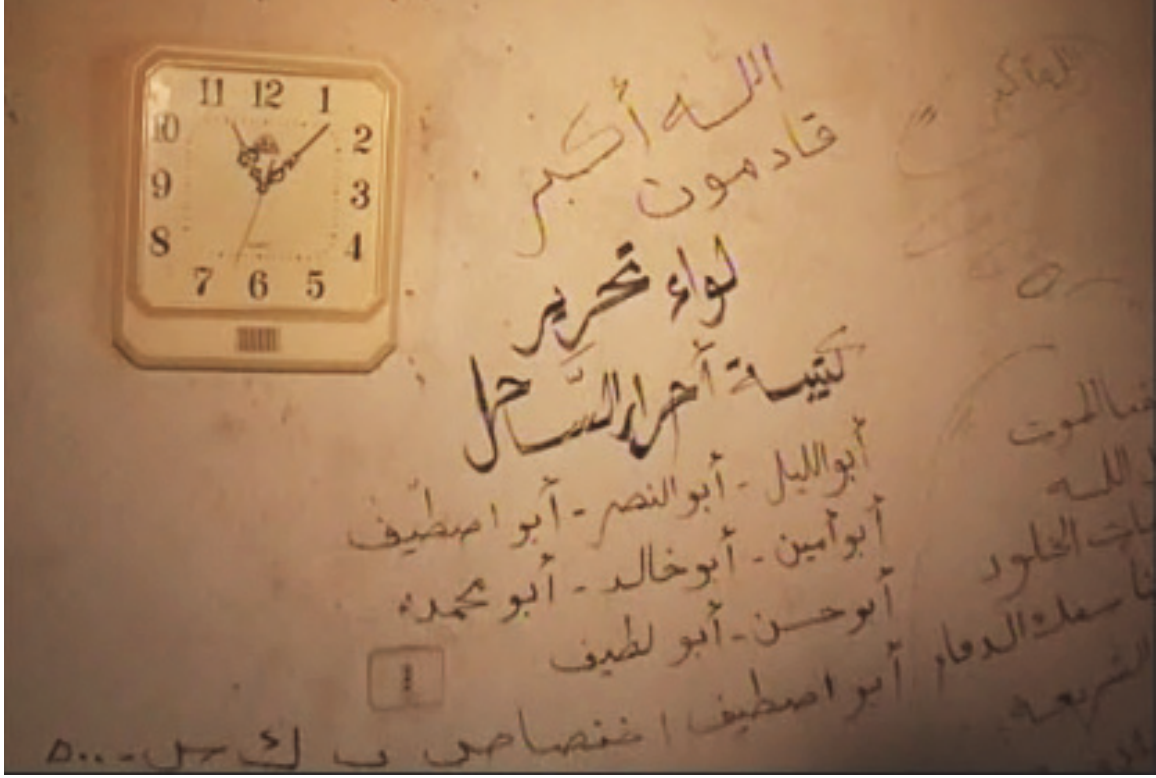 11 12 1
10 2
9 3
8 4
7 6 5
الله أكبر
قادمون
لواء تحرير
كتيبة أحرار السَّاحل
أبو الليل - أبو النصر - أبو اصطيف
أبو أمين - أبو خالد - أبو محمد
أبو حسن - أبو لطيف
أبو اصطيف اختصاصي ب ك س - ٥٠٠
الله أكبر
الموت
الله
الخلود
الدماء
الشريعة